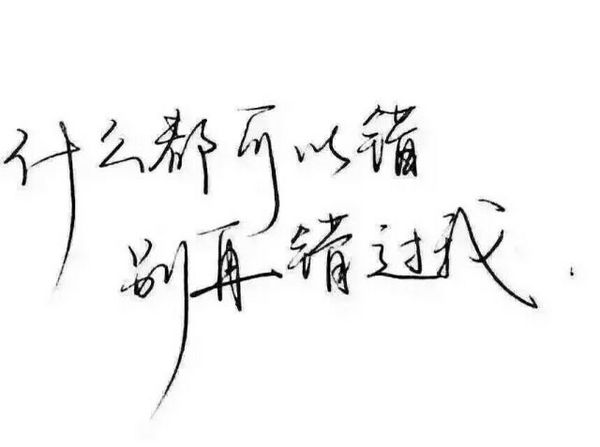 什么都可以错
别再错过我.